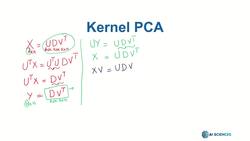 Kernel PCA
X = UDVᵀ
UᵀX = UᵀUDVᵀ
UᵀX = DVᵀ
Y = DVᵀ
UY = UDVᵀ
X = UDVᵀ
XV = UDV
AI SCIENCES